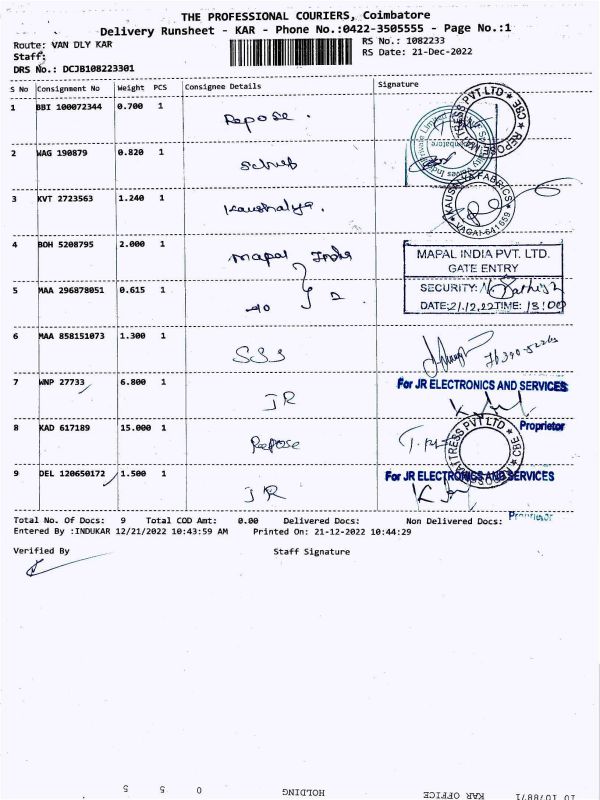 THE PROFESSIONAL COURIERS, Coimbatore
Delivery Runsheet - KAR - Phone No.:0422-3505555 - Page No.:1
Route: VAN DLY KAR
RS No.: 1082233
Staff:
RS Date: 21-Dec-2022
DRS No.: DCJB108223301
S No Consignment No Weight PCS Consignee Details Signature
1 BBI 100072344 0.700 1 Repose.
2 WAG 190879 0.820 1
3 KVT 2723563 1.240 1 Kaushalya.
KAUSALYA FABRICS
VAGAI-641659
4 BOH 5208795 2.000 1 Mapal India
MAPAL INDIA PVT. LTD.
GATE ENTRY
5 MAA 296878051 0.615 1 do } 2
SECURITY:
DATE:21.12.22 TIME: 13:00
6 MAA 858151073 1.300 1 SSS
7 WNP 27733 6.800 1 JR
For JR ELECTRONICS AND SERVICES
Proprietor
8 KAD 617189 15.000 1 Repose
9 DEL 120650172 1.500 1 JR
For JR ELECTRONICS AND SERVICES
Proprietor
Total No. Of Docs: 9 Total COD Amt: 0.00 Delivered Docs: Non Delivered Docs:
Entered By :INDUKAR 12/21/2022 10:43:59 AM Printed On: 21-12-2022 10:44:29
Verified By Staff Signature
KAR OFFICE
HOLDING
0 5 5